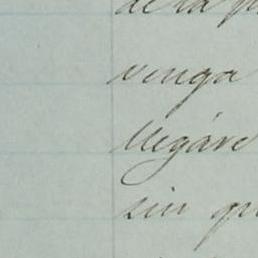 de la p
venga
llegáre
sin qu